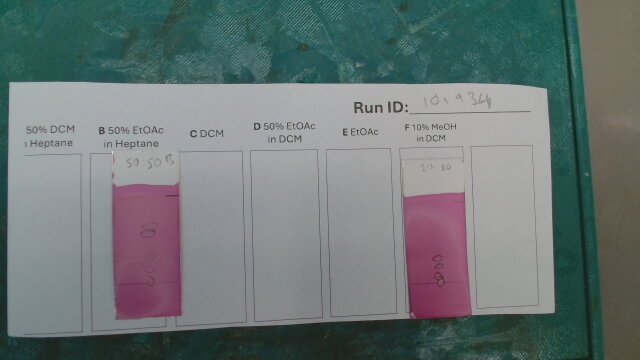 Run ID: 101934
50% DCM
Heptane
B 50% EtOAc
in Heptane
C DCM
D 50% EtOAc
in DCM
E EtOAc
F 10% MeOH
in DCM
50:50 B